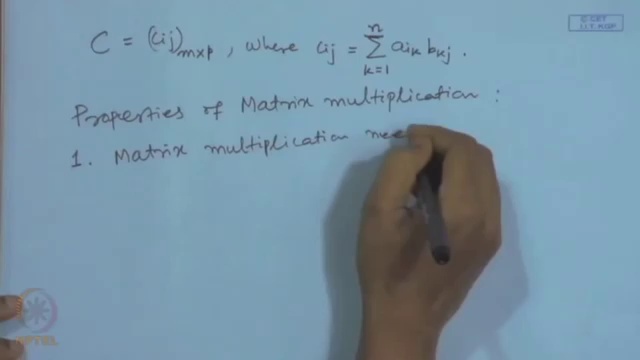 © CET
I.I.T. KGP
C = (cij)m×p, where cij = ∑k=1^n aik bkj.
Properties of Matrix multiplication :
1. Matrix multiplication nee
NPTEL